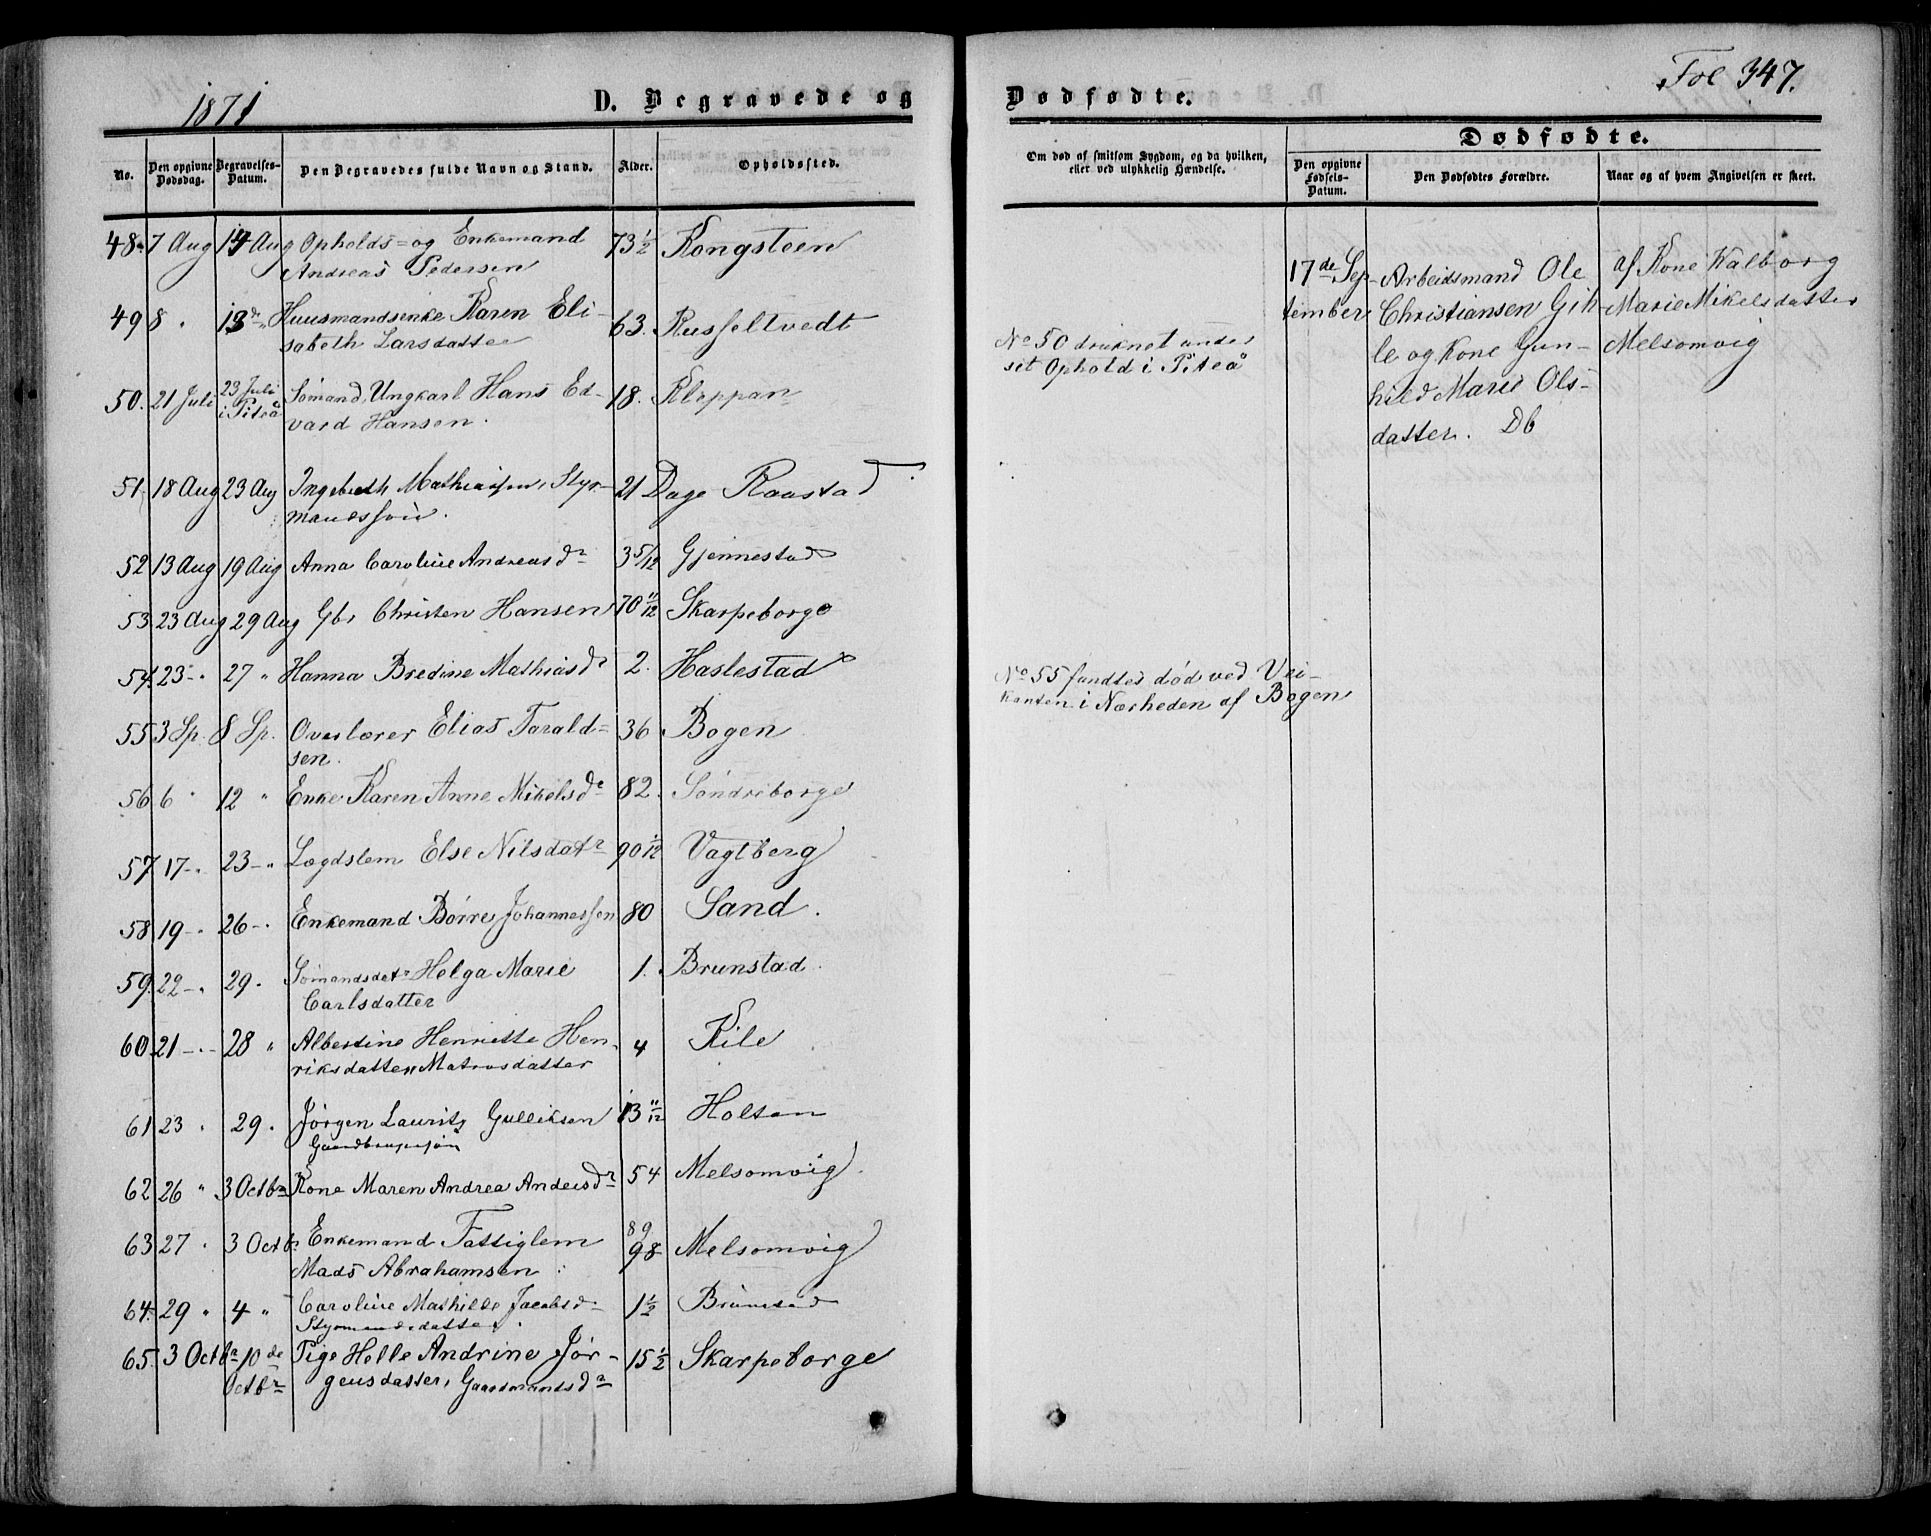 1871
D. Begravede og
No.
Den opgivne Dødsdag.
Begravelses-Datum.
Den Begravedes fulde Navn og Stand.
Alder.
Opholdssted.
48. 7 Aug 14 Aug Opholds- og Enkemand 73 1/2 Kongsteen
Andreas Pedersen
49 8 " 13de " Huusmandsenke Karen Eli- 63. Russeltvedt
sabeth Larsdatter
50. 21 Juli 23 Juli i Piteå Sømand, Ungkarl Hans Ed- 18. Kleppan
vard Hansen.
51. 18 Aug 23 Aug Ingebreth Mathiassen, Styr- 21 Dage Raastad
mandssøn.
52 13 Aug 19 Aug Anna Caroline Andreasdr 3 5/12 Gjennestad
53. 23 Aug 29 Aug Gbr Christen Hansen 70 11/12 Skarpeborge
54. 23 - " 27 " Hanna Bredine Mathiasdr 2. Haslestad
55 3 Sp. 8 Sp. Overlærer Elias Tarald- 36 Bogen
sen.
56 6 " 12 " Enke Karen Anne Mikelsdr 82. Søndreborge
57 17 - " 23 - " Lægdslem Else Nilsdatr 90 1/12 Vagtberg
58 19 - " 26 - " Enkemand Børre Johannessen 80 Sand.
59. 22 - " 29. Sømandsdatr Helga Marie 1. Brunstad.
Carlsdatter
60. 21 - " - 28 " Albertine Henriette Hen- 4 Kile
riksdatter, Matrosdatter
61 23 " 29. Jørgen Lauritz Gulliksen 13 11/12 Holtan
Gaardbrugersøn
62 26 " 3 Octbr Kone Maren Andrea Andersdr 54 Melsomvig.
63 27 " 3 Octbr Enkemand Fattiglem 89 98 Melsomvig
Mads Abrahamsen
64. 29 " 4 " Caroline Mathilde Jacobsd- 1 1/2 Brunstad
Styrmandsdatter.
65. 3 Octbr 10de Octbr Pige Helle Andrine Jør- 15 1/2 Skarpeborge
gensdatter, Gaardmandsdr
Fol 347.
Dødfødte.
Om død af smitsom Sygdom, og da hvilken, eller ved ulykkelig Hændelse.
Dødfødte.
Den opgivne Fødsels-Datum.
Den Dødfødtes Forældre.
Naar og af hvem Angivelsen er skeet.
No 50 druknet under
sit Ophold i Piteå
No 55 fandtes død ved Vei-
kanten i Nærheden af Bogen
17de Sep-
tember
Arbeidsmand Ole
Christiansen Gih-
le og Kone Gun-
hild Marie Ols-
datter. Db
af Kone Walborg
Marie Mikelsdatter
Melsomvig